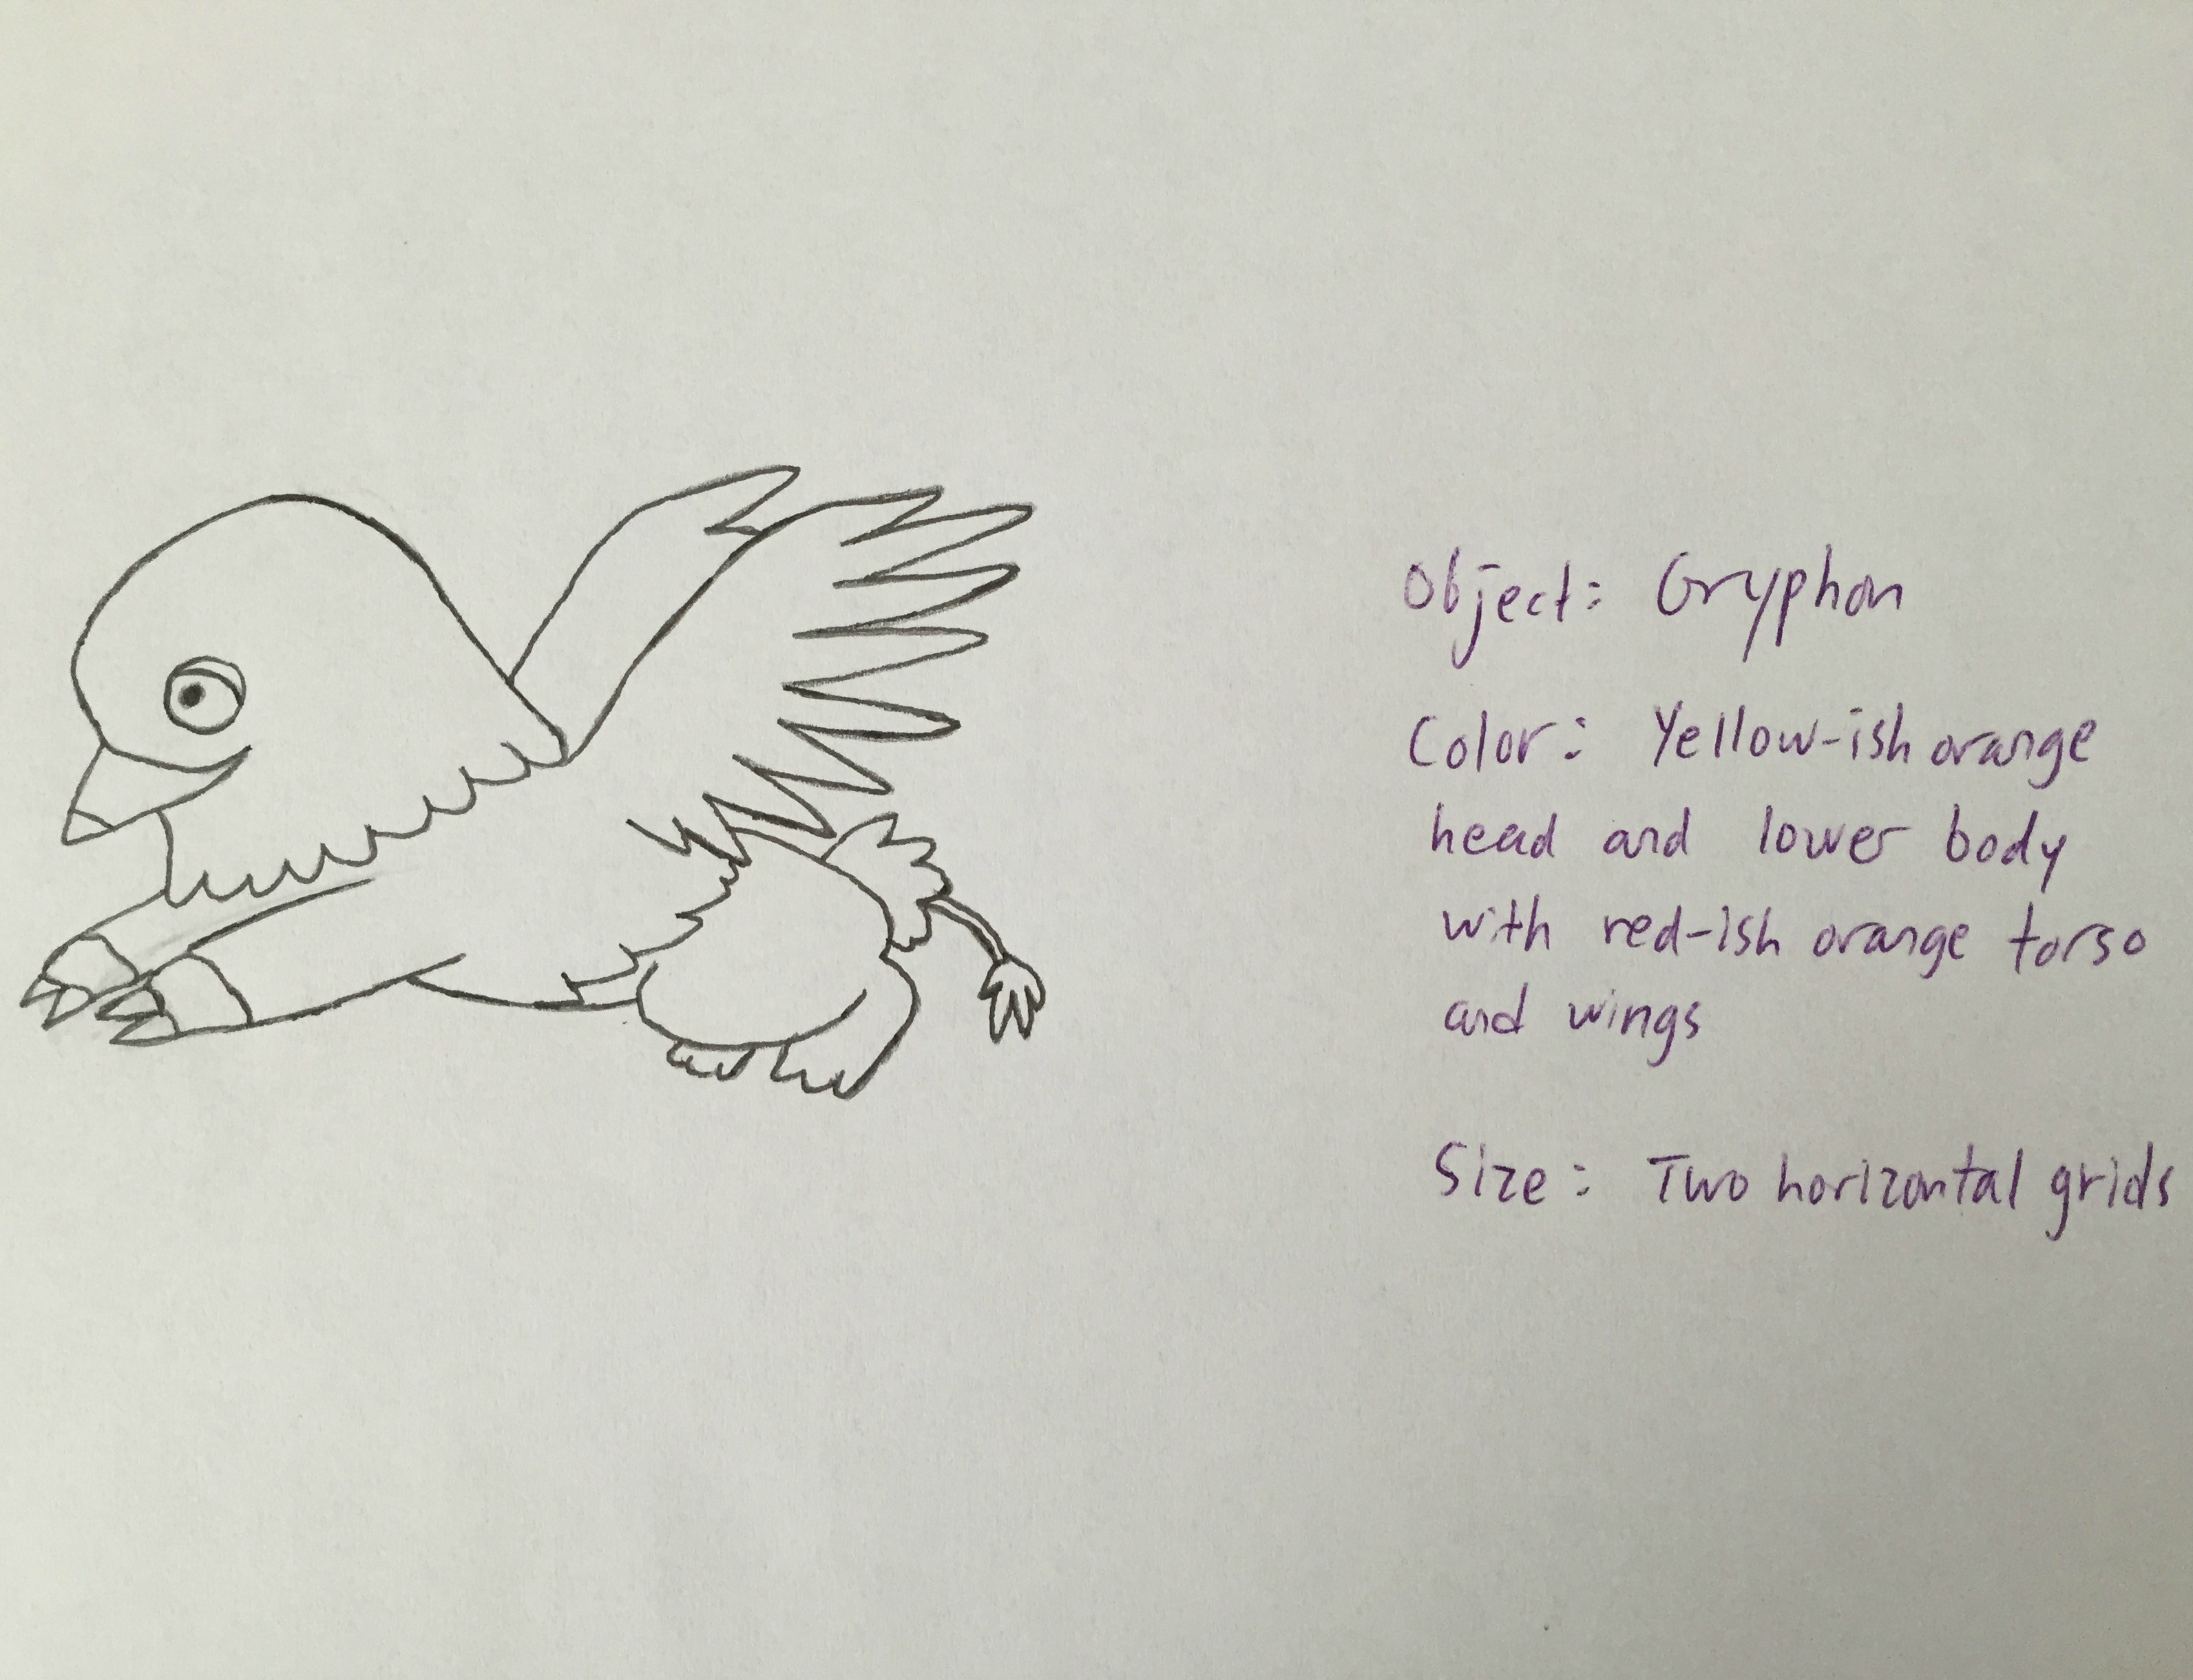 Object: Gryphon
Color: Yellow-ish orange
head and lower body
with red-ish orange torso
and wings
Size: Two horizontal grids